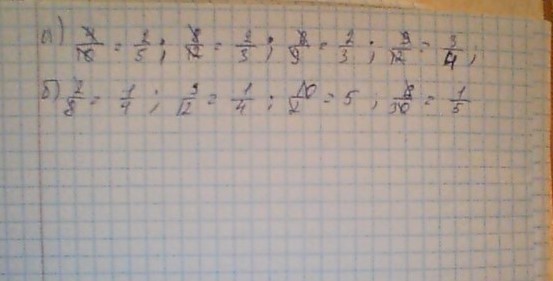 а) 4/10 = 2/5; 8/12 = 2/3; 6/9 = 2/3; 9/12 = 3/4;
б) 2/8 = 1/4; 3/12 = 1/4; 10/2 = 5; 6/30 = 1/5